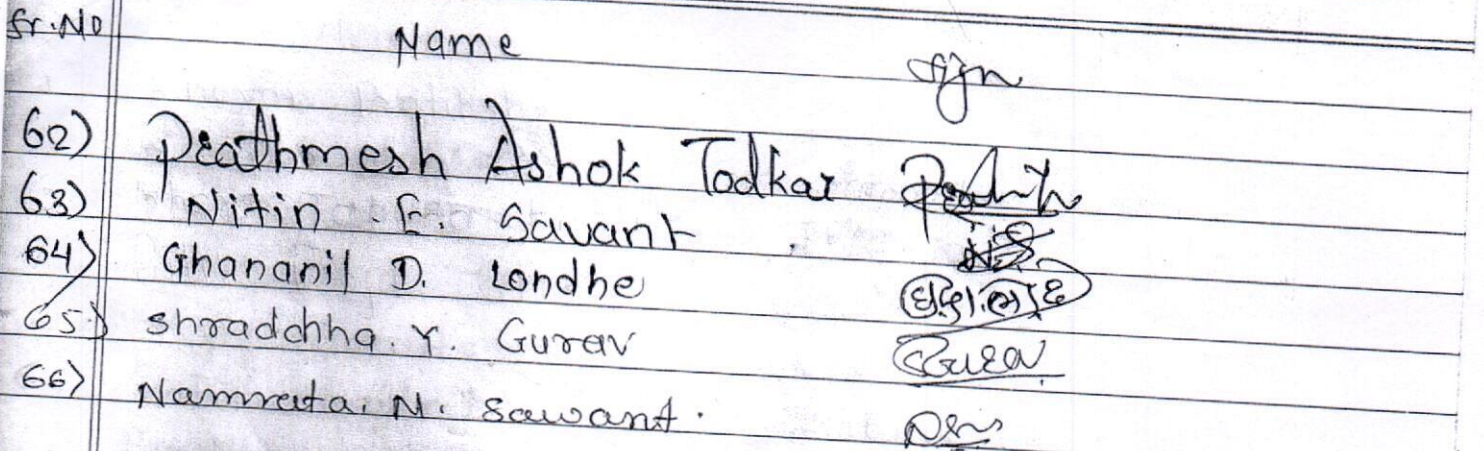 Sr.No Name Sign
62) Prathmesh Ashok Todkar
63) Nitin . E. Savant
64) Ghananil D. Londhe
65) Shradchha. Y. Gurav
66) Namrata. N. Sawant.